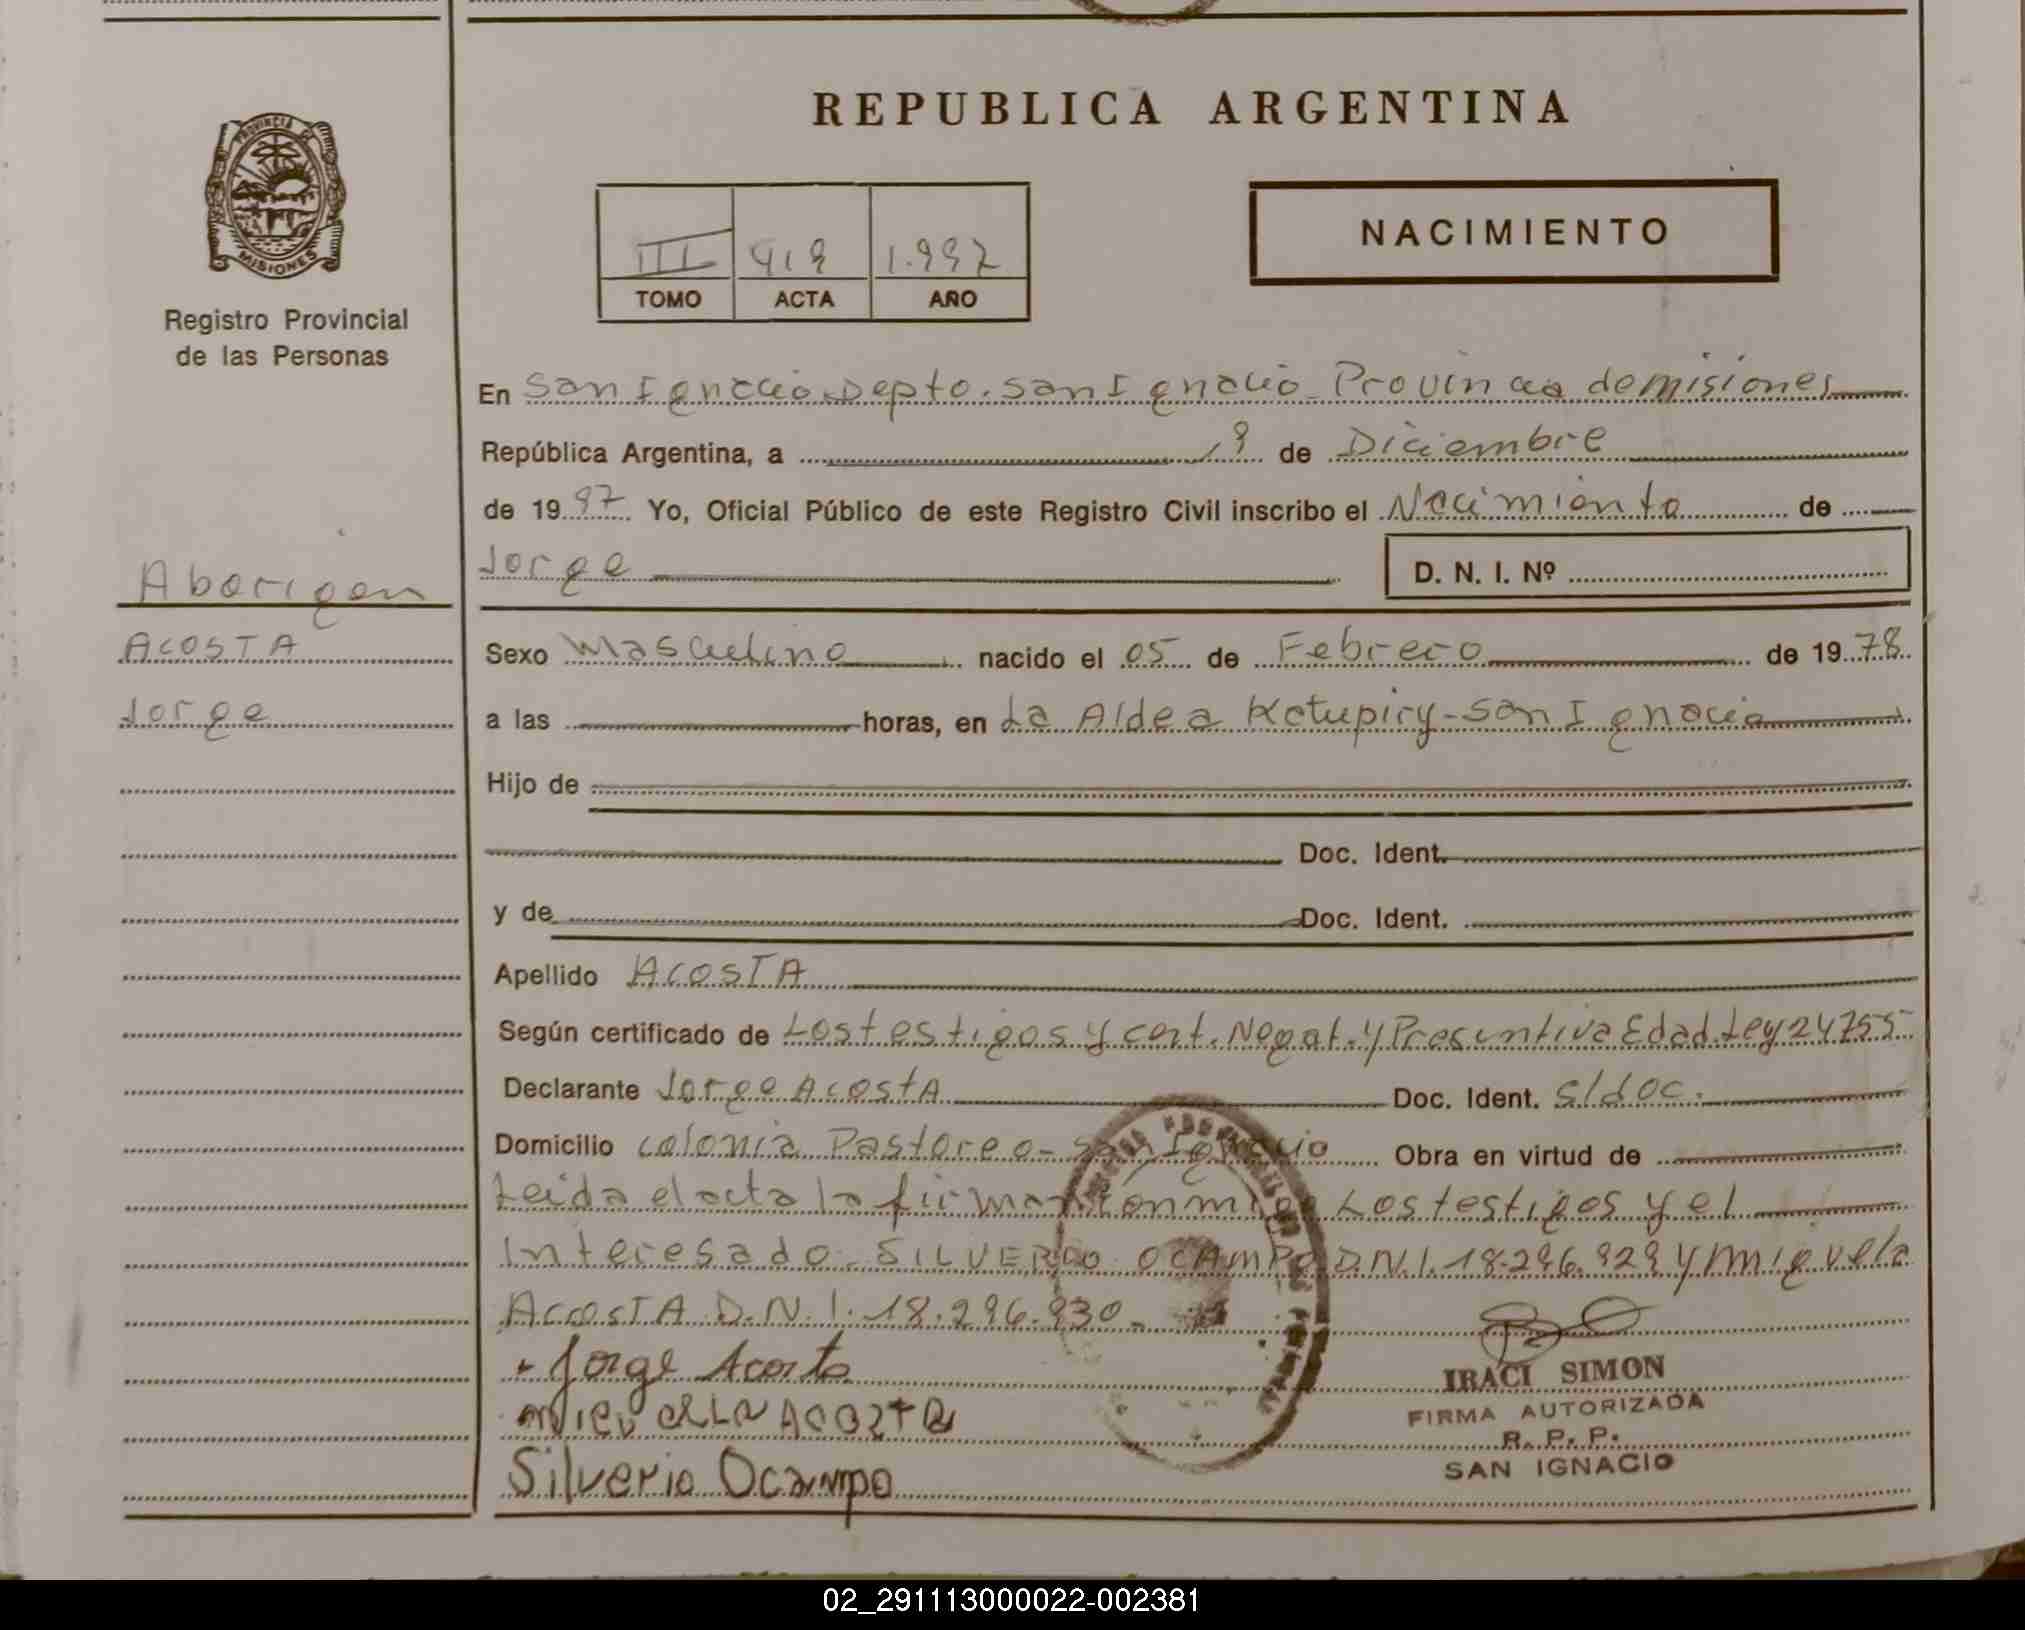 REPUBLICA ARGENTINA
PROVINCIA DE
MISIONES
Registro Provincial
de las Personas
III 419 1.997
TOMO ACTA AÑO
NACIMIENTO
En San Ignacio Depto. San Ignacio Provincia de misiones
República Argentina, a 19 de Diciembre
de 1997 Yo, Oficial Público de este Registro Civil inscribo el Nacimiento de
Jorge D. N. I. Nº
Aborigen
ACOSTA
Jorge
Sexo Masculino nacido el 05 de Febrero de 1978
a las horas, en La Aldea Katupiry - San Ignacio
Hijo de
Doc. Ident.
y de Doc. Ident.
Apellido ACOSTA
Según certificado de Los testigos y cert. Negat. y Presuntiva Edad. Ley 24755
Declarante Jorge ACOSTA Doc. Ident. s/doc.
Domicilio colonia Pastoreo - San Ignacio Obra en virtud de
Leida el acta la firman conmigo Los testigos y el
Interesado. SILVERIO OCAMPO D.N.I. 18.296.929 y miguela
ACOSTA D.N.I. 18.296.930.
Jorge Acosta
ACOSTA
Silverio Ocampo
IRACI SIMON
FIRMA AUTORIZADA
R. P. P.
SAN IGNACIO
02_291113000022-002381